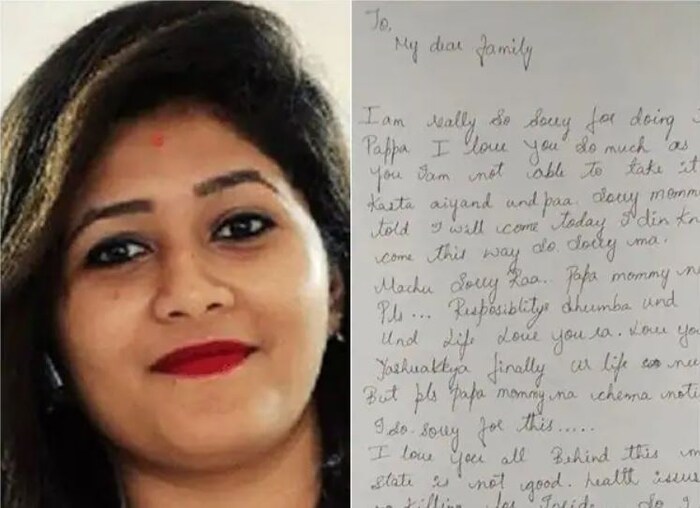 To,
My dear family
I am really so sorry for doing
Pappa I love you so much as
you I am not able to take it
Kasta aiyand und paa. Sorry momm
told I will come today I din kn
come this way so. Sorry ma.
Machu Sorry Raa.. Papa mommy n
Pls... Resposiblitye dhumba und
Und life Love you ra. Love yo
Yashuakkya finally ur life so nu
But pls Papa mommy na chenna noti
I so sorry for this.....
I love you all Behind this m
state is not good. health issu
killing inside. So I